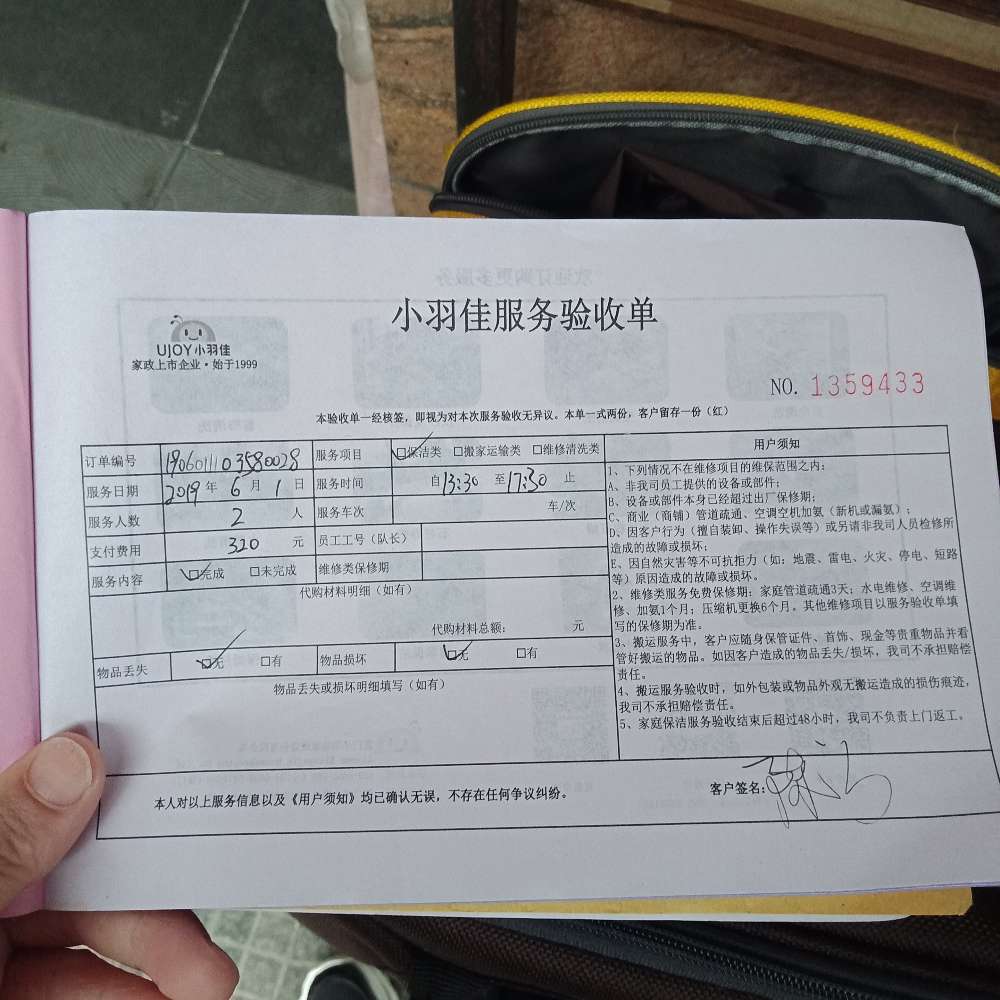 小羽佳服务验收单
UJOY小羽佳
家政上市企业·始于1999
NO. 1359433
本验收单一经核签，即视为对本次服务验收无异议。本单一式两份，客户留存一份（红）
订单编号 1906011103580028 服务项目 ☑保洁类 □搬家运输类 □维修清洗类
服务日期 2019 年 6 月 1 日 服务时间 自13:30 至17:30 止
服务人数 2 人 服务车次 车/次
支付费用 320 元 员工工号（队长）
服务内容 ☑完成 □未完成 维修类保修期
代购材料明细（如有）
代购材料总额： 元
物品丢失 ☑无 □有 物品损坏 ☑无 □有
物品丢失或损坏明细填写（如有）
用户须知
1、下列情况不在维修项目的维保范围之内：
A、非我司员工提供的设备或部件；
B、设备或部件本身已经超过出厂保修期；
C、商业（商铺）管道疏通、空调空机加氨（新机或漏氨）；
D、因客户行为（擅自装卸、操作失误等）或另请非我司人员检修所
造成的故障或损坏；
E、因自然灾害等不可抗拒力（如：地震、雷电、火灾、停电、短路
等）原因造成的故障或损坏。
2、维修类服务免费保修期：家庭管道疏通3天；水电维修、空调维
修、加氨1个月；压缩机更换6个月。其他维修项目以服务验收单填
写的保修期为准。
3、搬运服务中，客户应随身保管证件、首饰、现金等贵重物品并看
管好搬运的物品。如因客户造成的物品丢失/损坏，我司不承担赔偿
责任。
4、搬运服务验收时，如外包装或物品外观无搬运造成的损伤痕迹，
我司不承担赔偿责任。
5、家庭保洁服务验收结束后超过48小时，我司不负责上门返工。
本人对以上服务信息以及《用户须知》均已确认无误，不存在任何争议纠纷。
客户签名：